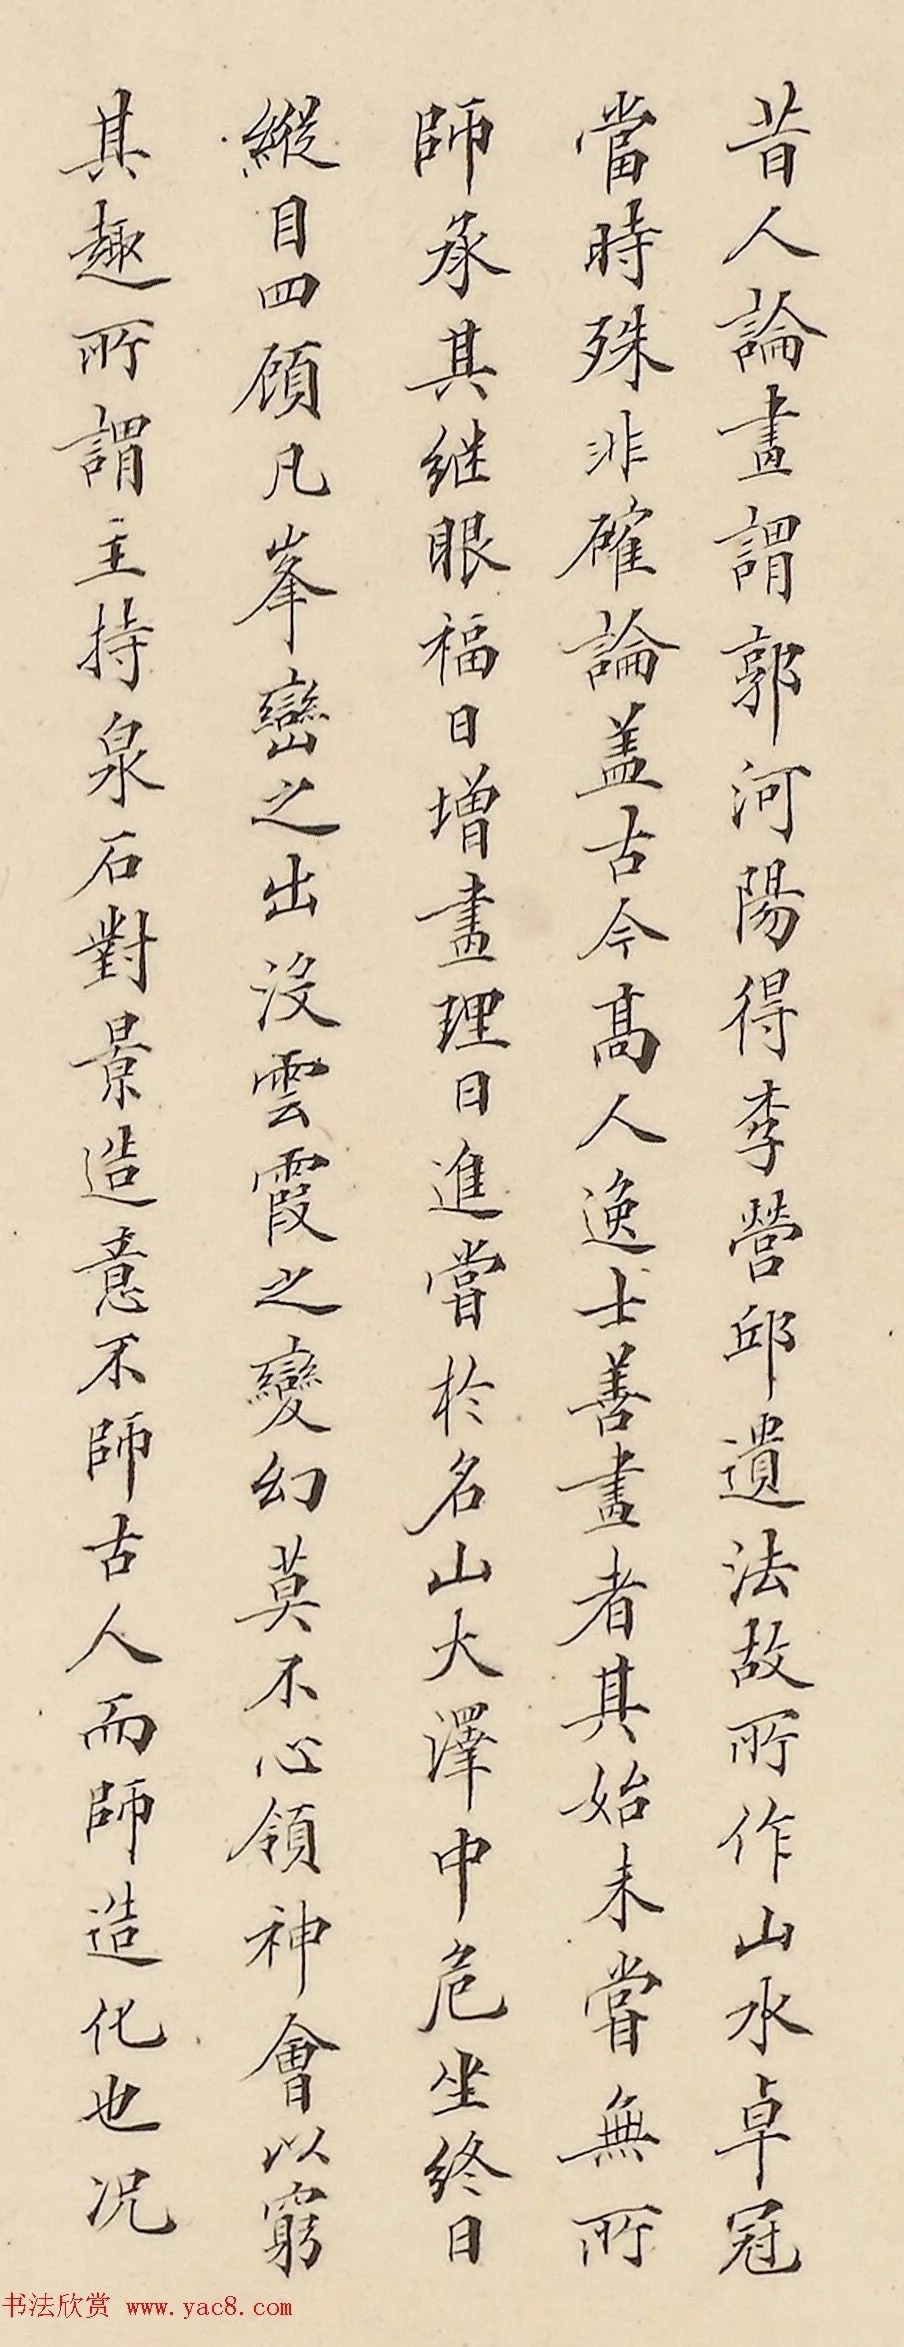 昔人論畫謂郭河陽得李營邱遺法故所作山水卓冠
當時殊非確論盖古今髙人逸士善畫者其始未嘗無所
師承其继眼福日增畫理日進嘗於名山大澤中危坐終日
縱目四顧凡峯巒之出没雲霞之變幻莫不心領神會以窮
其趣所謂主持泉石對景造意不師古人而師造化也况
书法欣赏 www.yac8.com